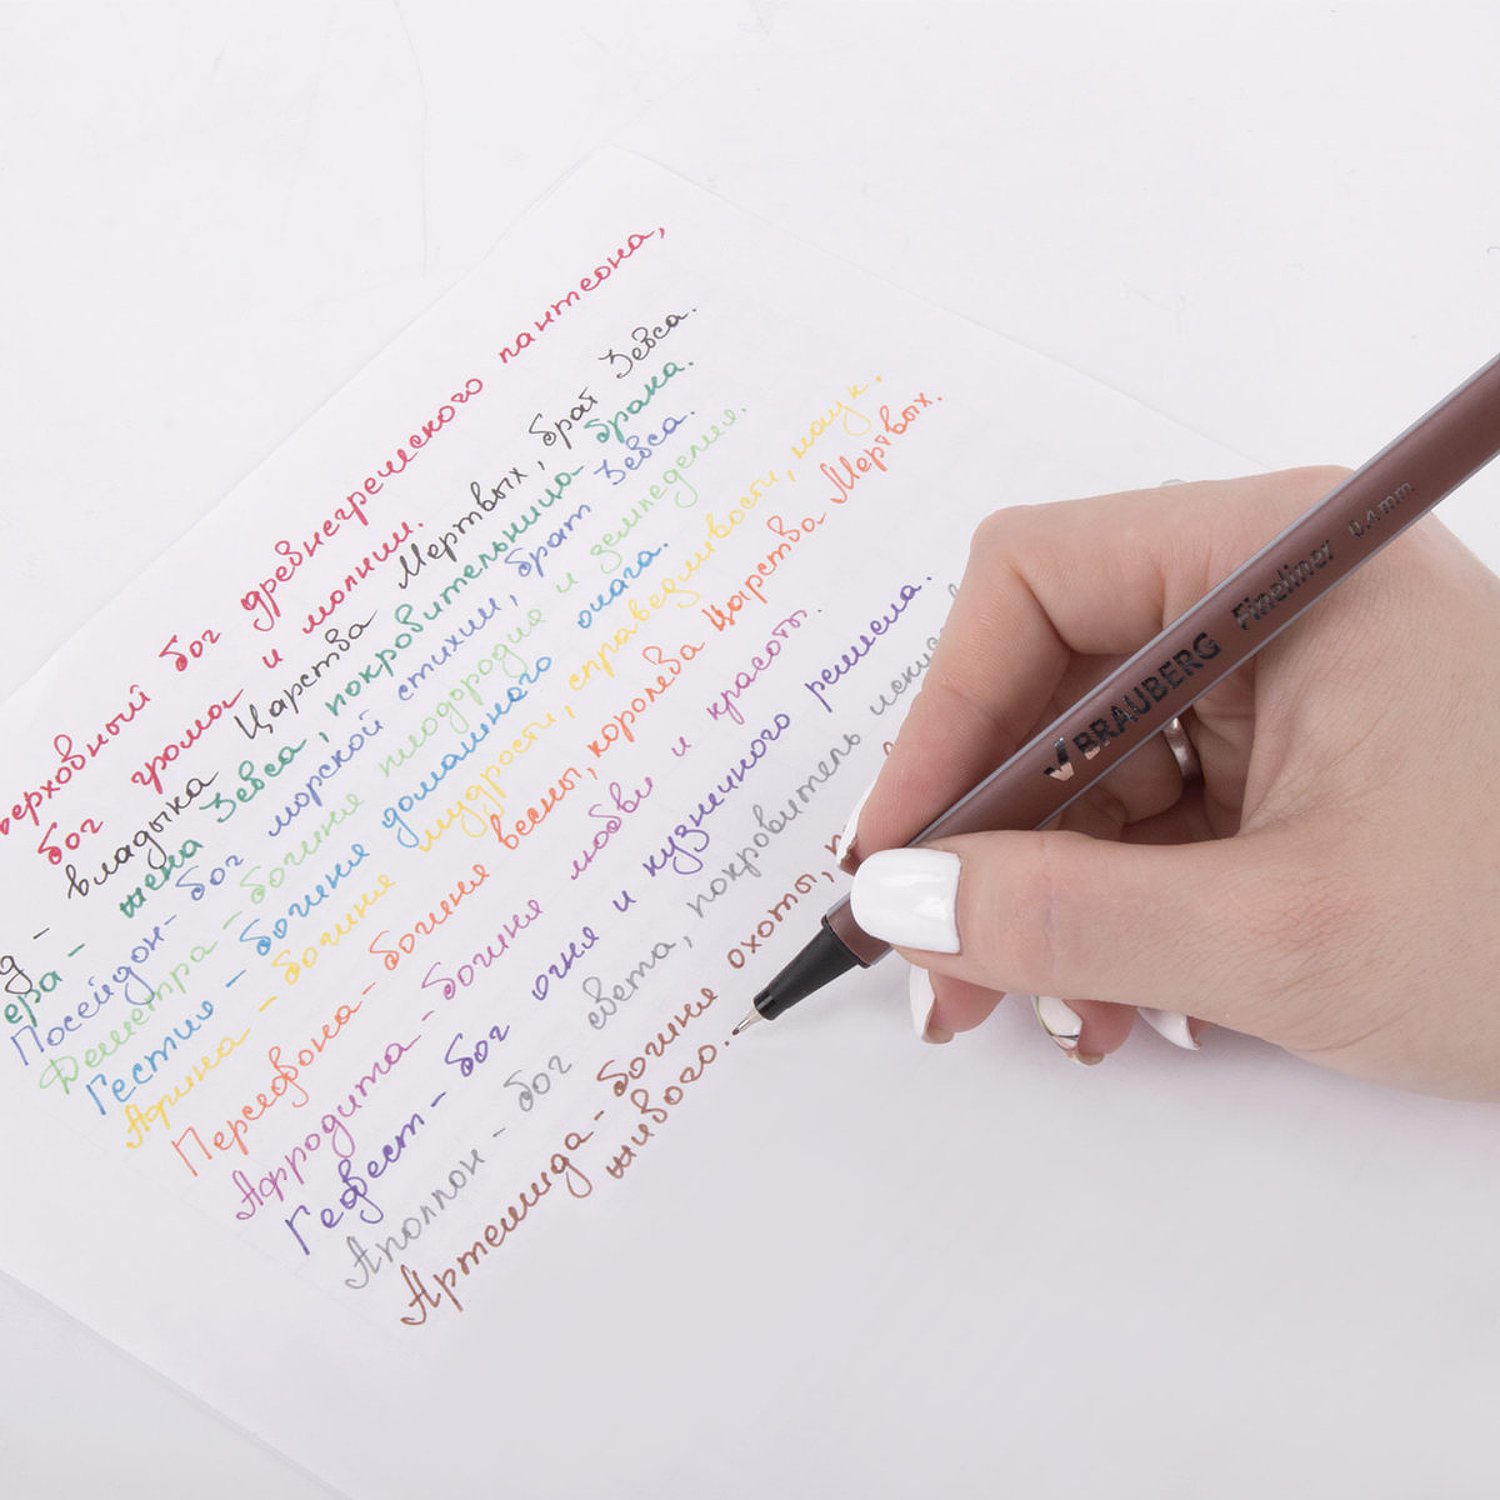 верховный бог древнегреческого пантеона,
бог грома и молнии.
д - владыка Царства Мертвых, брат Зевса.
ера - жена Зевса, покровительница брака.
Посейдон - бог морской стихии, брат Зевса.
Деметра - богиня плодородия и земледелия.
Гестия - богиня домашнего очага.
Афина - богиня мудрости, справедливости, наук.
Персефона - богиня весны, королева Царства Мертвых.
Афродита - богиня любви и красоты.
Гефест - бог огня и кузнечного ремесла.
Аполлон - бог света, покровитель
Артемида - богиня охоты,
живого.
BRAUBERG Fineliner 0,4 mm